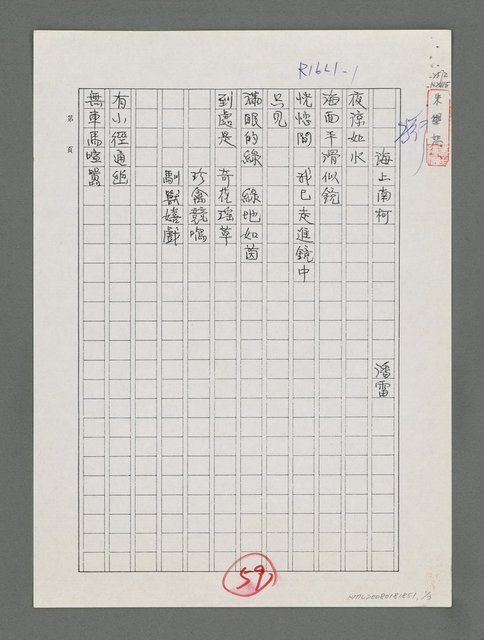 R1621-1
海上南柯
潘雷
夜涼如水
海面平滑似鏡
恍惚間 我已走進鏡中
只見
滿眼的綠 綠地如茵
到處是 奇花瑶草
珍禽競鳴
馴獸嬉戲
有小徑通幽
無車馬喧囂
第 頁
59
NMTL20080181851, 1/3